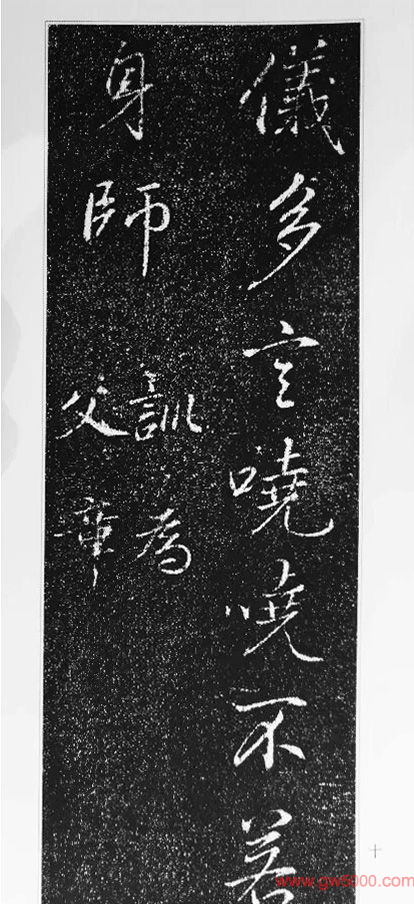 儀多言嘵嘵不若
身師
訓為
父章
十
www.gw5000.com